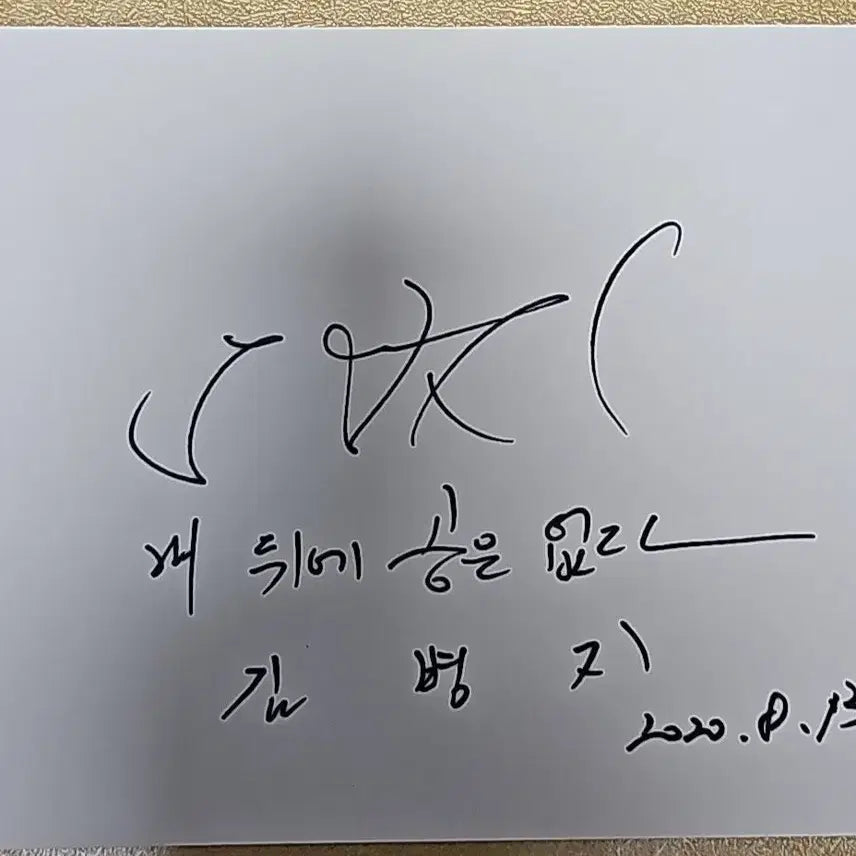 내 뒤에 공은 없다
김 병 지
2020.8.13